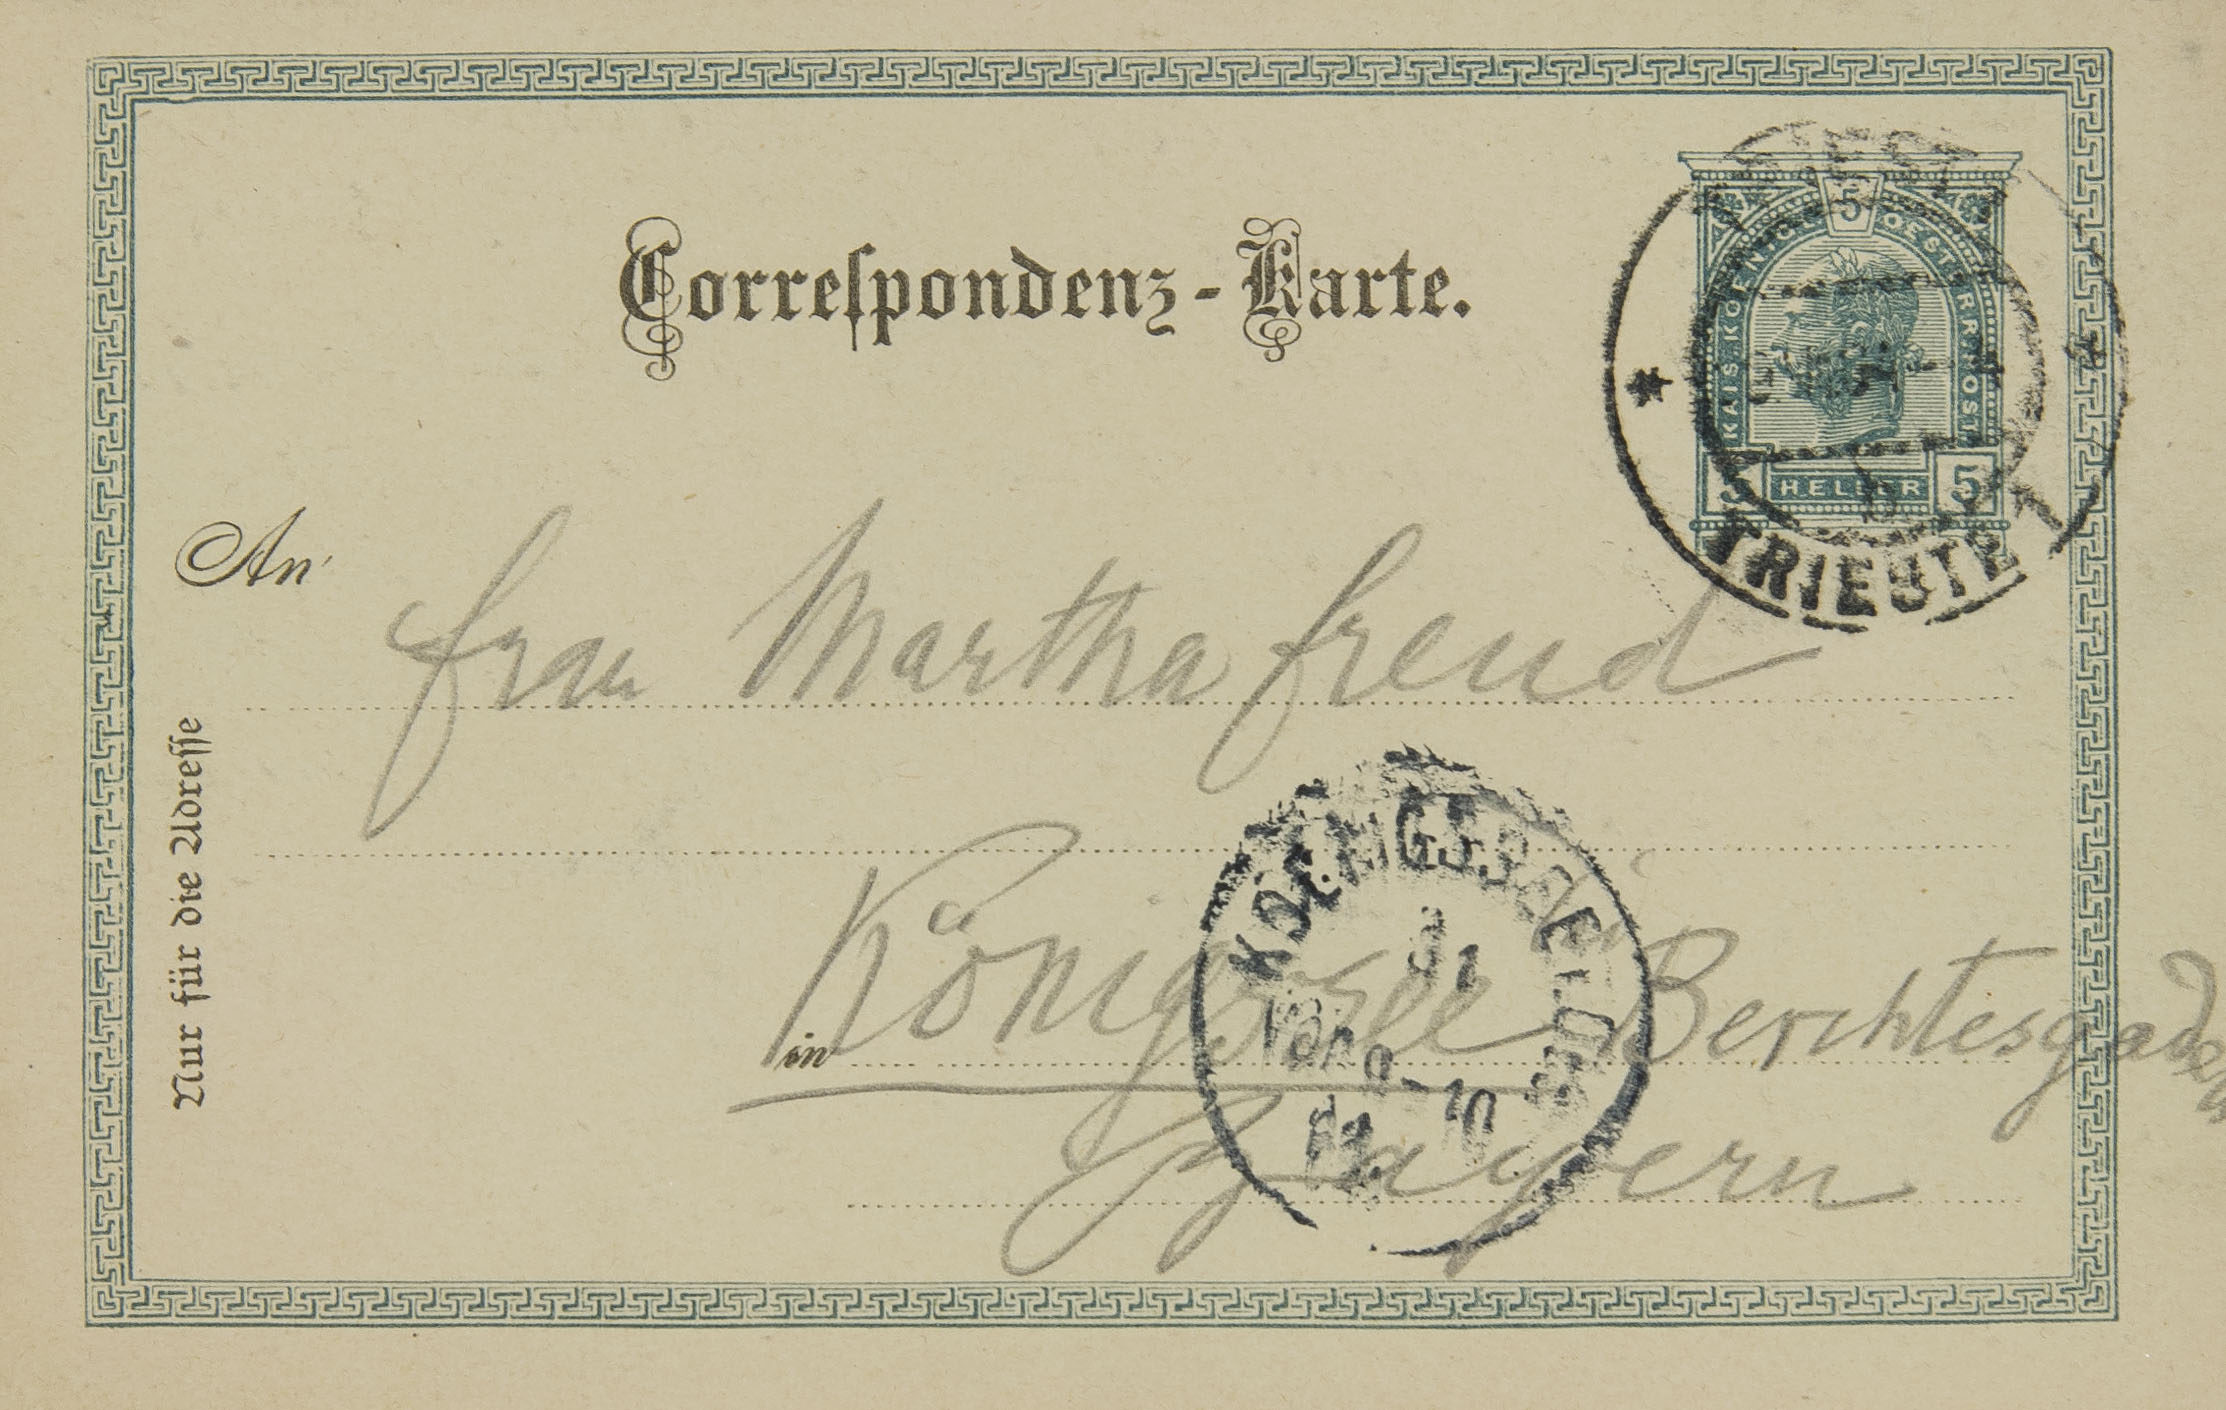 Correspondenz-Karte.
5
KAIS. KOENIGL. OESTERR. POST
5 HELLER 5
TRIEST
TRIESTE 1
An
Frau Martha Freud
Nur für die Adresse
in Königssee bei Berchtesgaden
Bayern
KOENIGSSEE
31
8-10